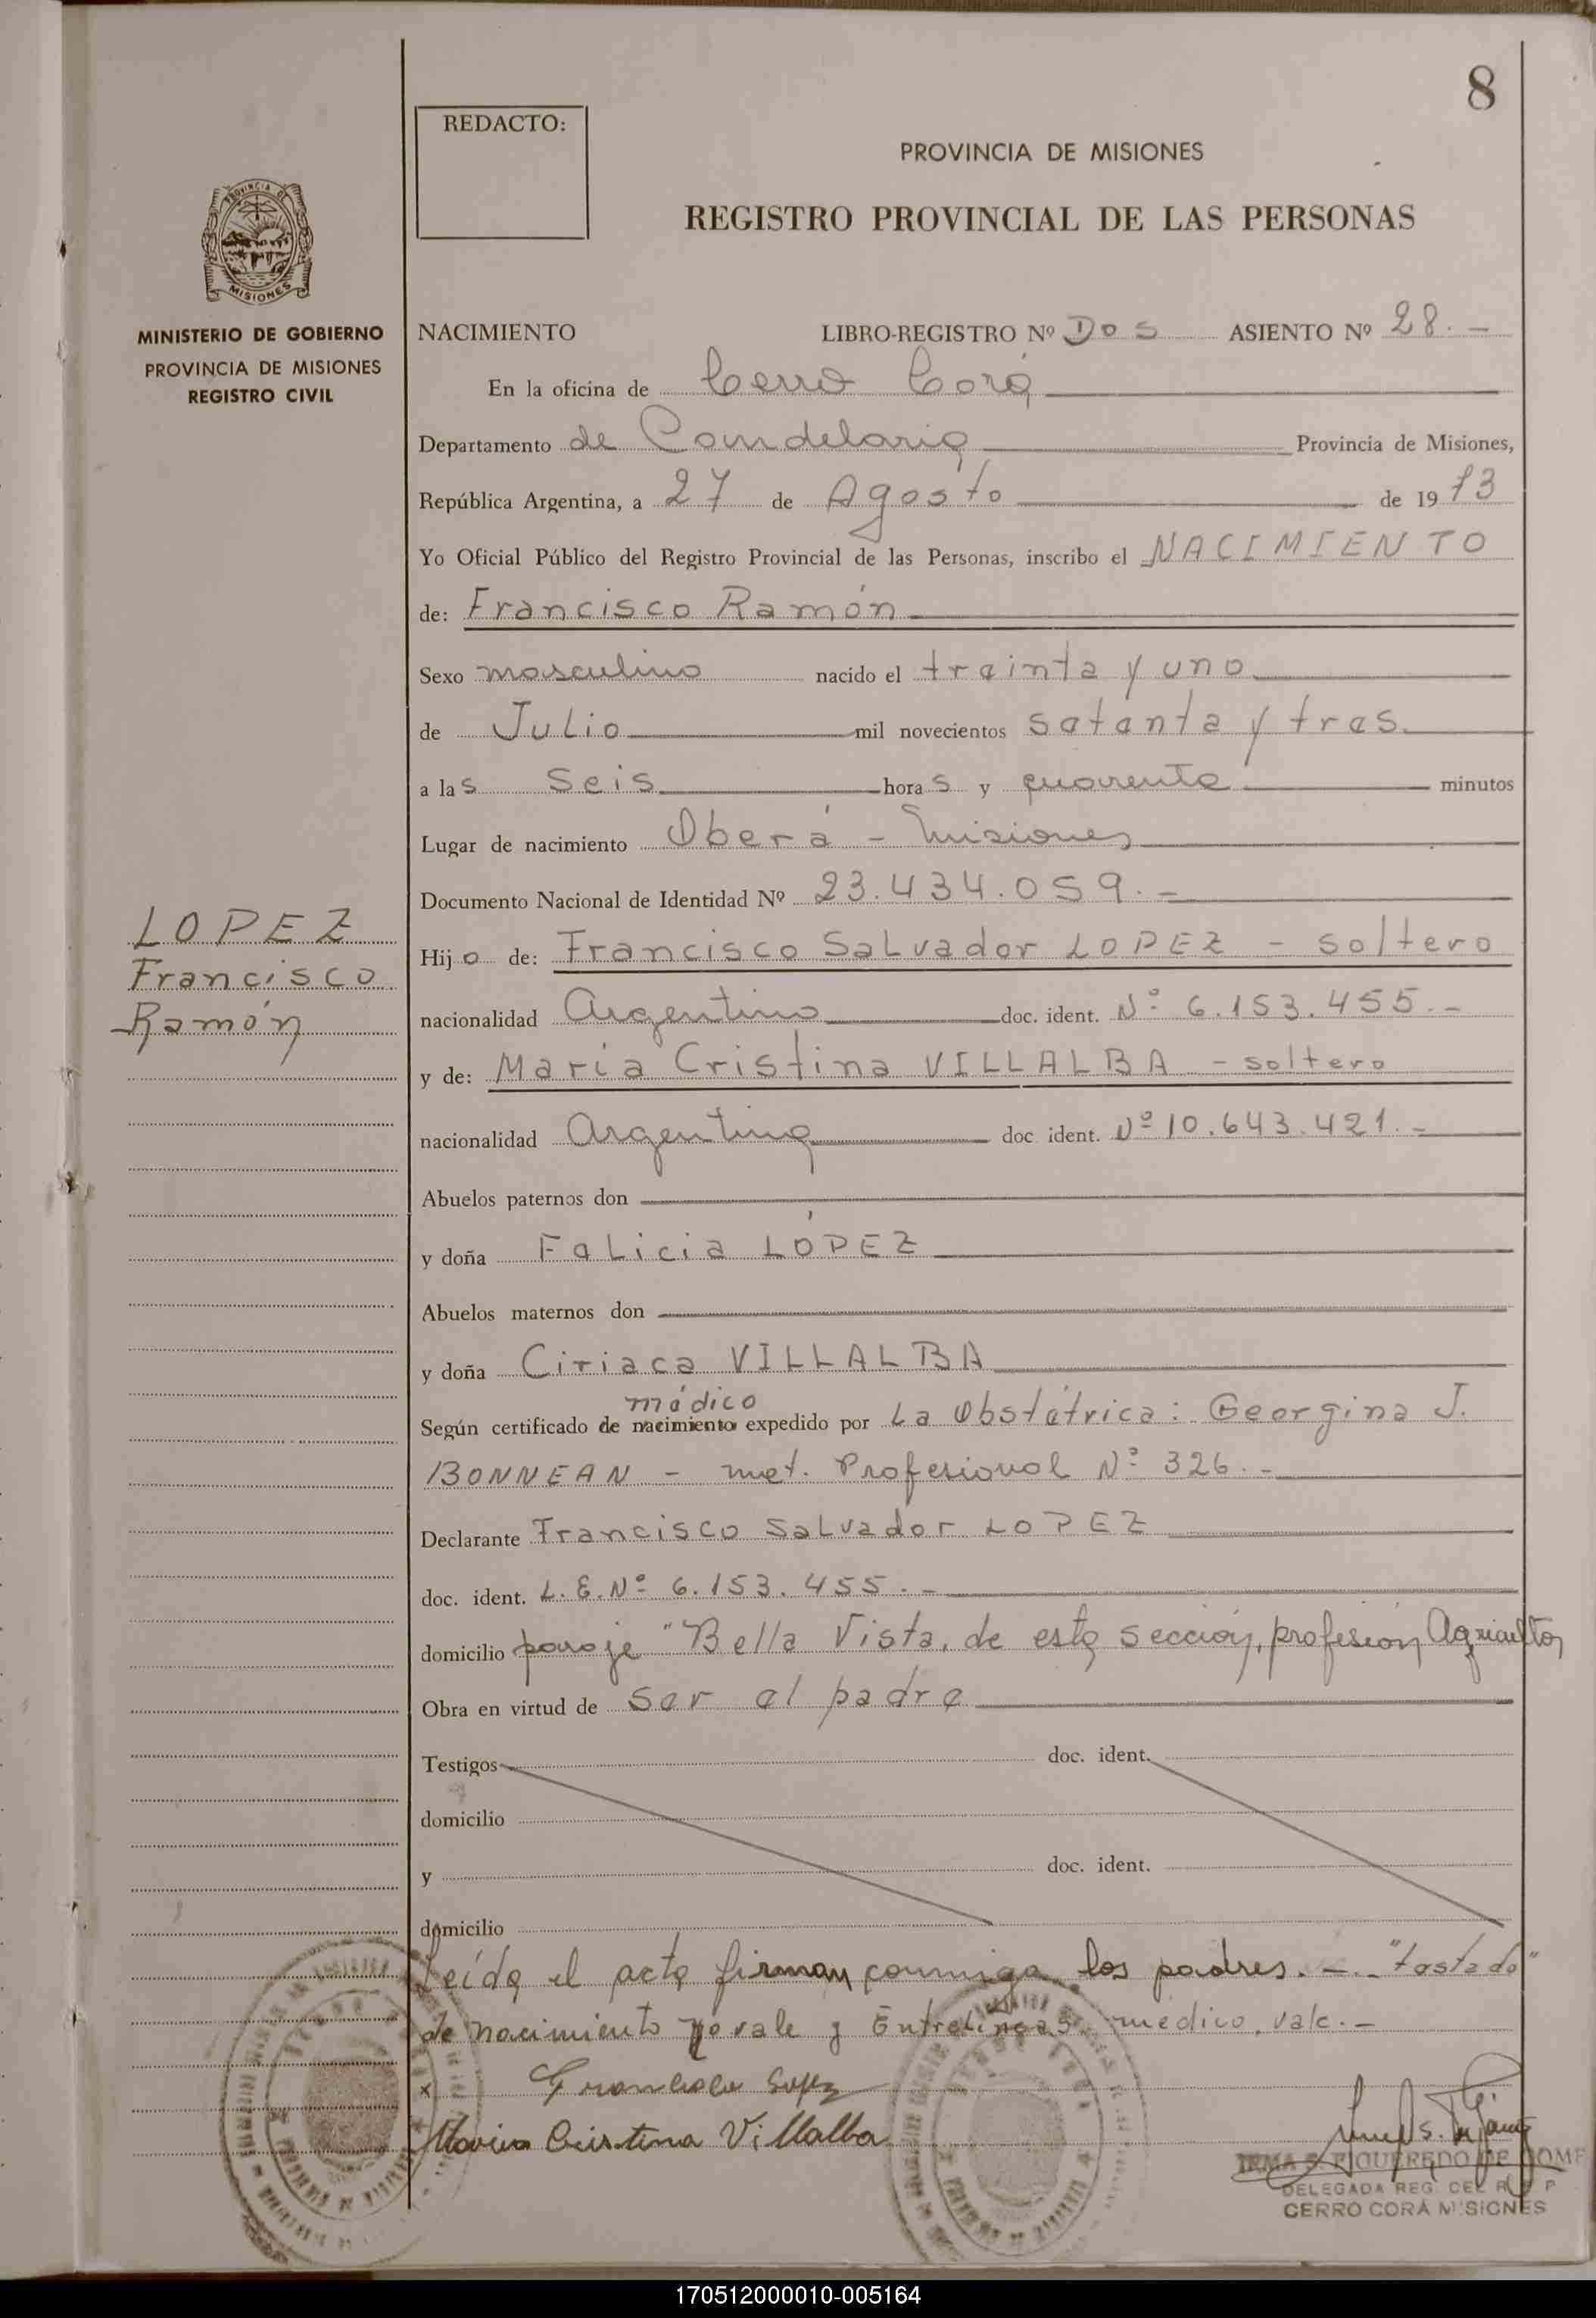 8
REDACTO:
PROVINCIA DE MISIONES
REGISTRO PROVINCIAL DE LAS PERSONAS
PROVINCIA DE
MISIONES
MINISTERIO DE GOBIERNO
PROVINCIA DE MISIONES
REGISTRO CIVIL
NACIMIENTO LIBRO-REGISTRO Nº Dos ASIENTO Nº 28.-
En la oficina de Cerro Corá
Departamento de Candelaria Provincia de Misiones,
República Argentina, a 27 de Agosto de 1973
Yo Oficial Público del Registro Provincial de las Personas, inscribo el NACIMIENTO
de: Francisco Ramón
Sexo masculino nacido el treinta y uno
de Julio mil novecientos setenta y tres
a las seis horas y cuarenta minutos
Lugar de nacimiento Oberá - Misiones
Documento Nacional de Identidad Nº 23.434.059.-
LOPEZ
Francisco
Ramón
Hijo de: Francisco Salvador LOPEZ - soltero
nacionalidad Argentino doc. ident. Nº 6.153.455.-
y de: María Cristina VILLALBA - soltero
nacionalidad Argentina doc ident. Nº 10.643.421.-
Abuelos paternos don
y doña Felicia LÓPEZ
Abuelos maternos don
y doña Ciriaca VILLALBA
médico
Según certificado de nacimiento expedido por La Obstétrica: Georgina J.
BONNEAN - mat. Profesional Nº 326.-
Declarante Francisco Salvador LOPEZ
doc. ident. L.E.Nº 6.153.455.-
domicilio paraje "Bella Vista, de esta sección, profesión Agricultor
Obra en virtud de ser el padre
Testigos doc. ident.
domicilio
y doc. ident.
domicilio
Leída el acta firman conmigo los padres.-.- "testado"
de nacimiento no vale y Entrelíneas médico, vale.-
x Francisco Lopez
Maria Cristina Villalba
IRMA S. FIGUEREDO DE GOME
DELEGADA REG. DEL R P
CERRO CORÁ MISIONES
170512000010-005164